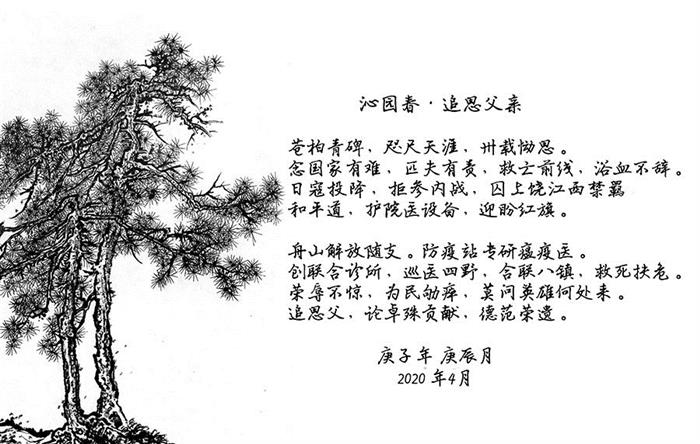 沁园春·追思父亲
苍柏青碑，咫尺天涯，卅载恸思。
念国家有难，匹夫有责，救亡前线，浴血不辞。
日寇投降，拒参内战，囚上饶江西禁羁
和平道，护院医设备，迎盼红旗。
舟山解放随支。防疫站专研瘟疫医。
创联合诊所，巡医四野，合联八镇，救死扶危。
荣辱不惊，为民劬瘁，莫问英雄何处来。
追思父，论卓殊贡献，德范荣遗。
庚子年 庚辰月
2020 年4月